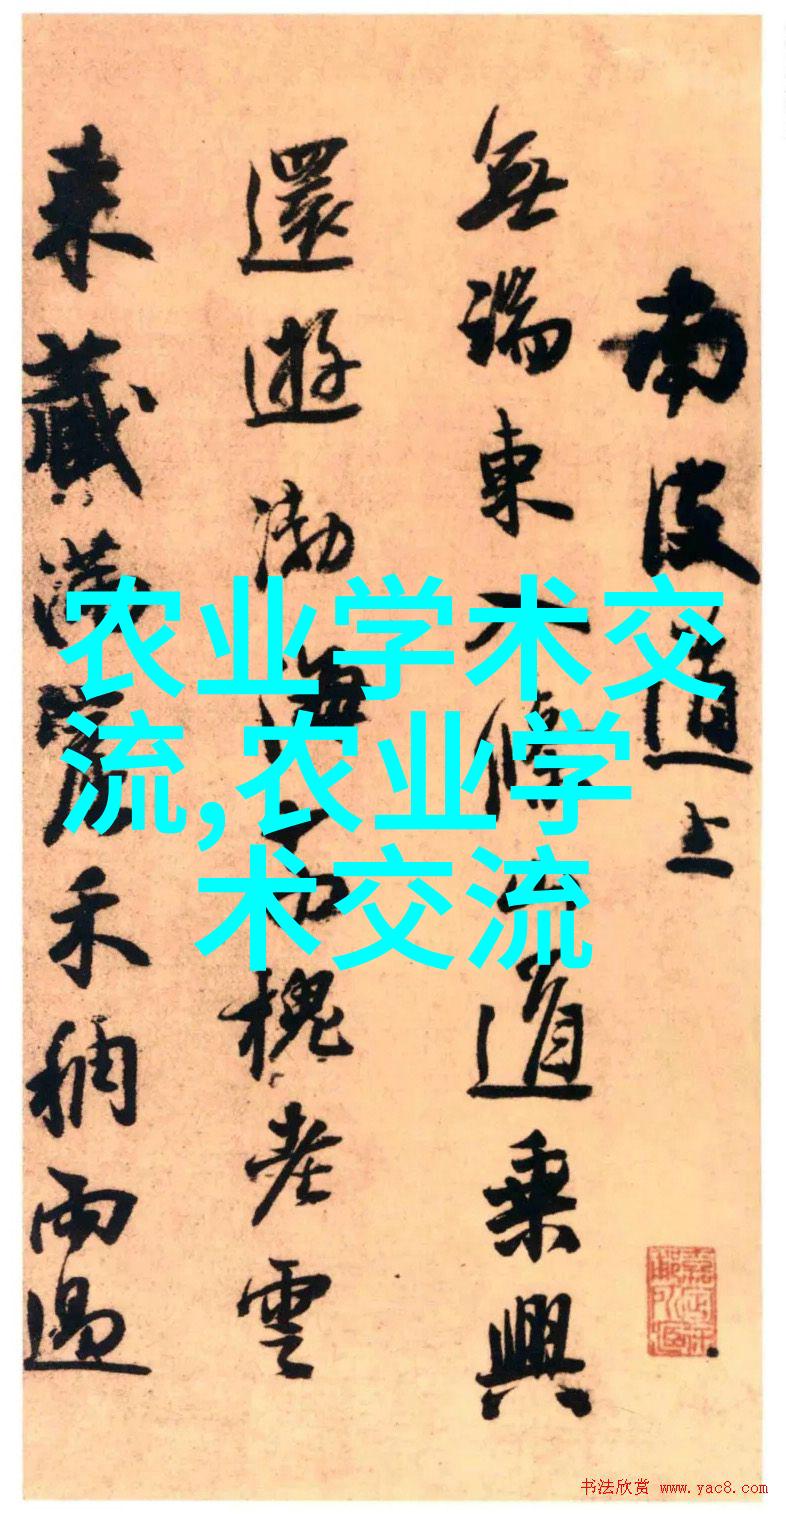 南皮道上
無端東下條山道乘興
還遊渤海槐老雲
來藏禾稠雨過
农业学术交
流,农业学
术交流
书法欣赏 www.yac8.com